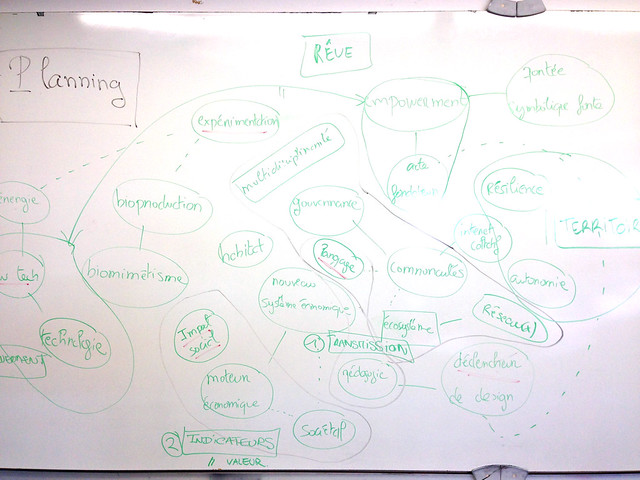 Planning
RÊVE
empowerment
portée
symbolique forte
expérimentation
multidisciplinarité
acte
fondateur
résilience
TERRITOIR
énergie
bioproduction
gouvernance
intérêt
collectif
habitat
langage
communautés
autonomie
w tech
biomimétisme
nouveau
système économique
Réseau(x)
écosystème
Impact
social
technologie
① TRANSMISSION
VERMENT
moteur
économique
pédagogie
déclencheur
de design
sociétal
② INDICATEURS
// VALEUR